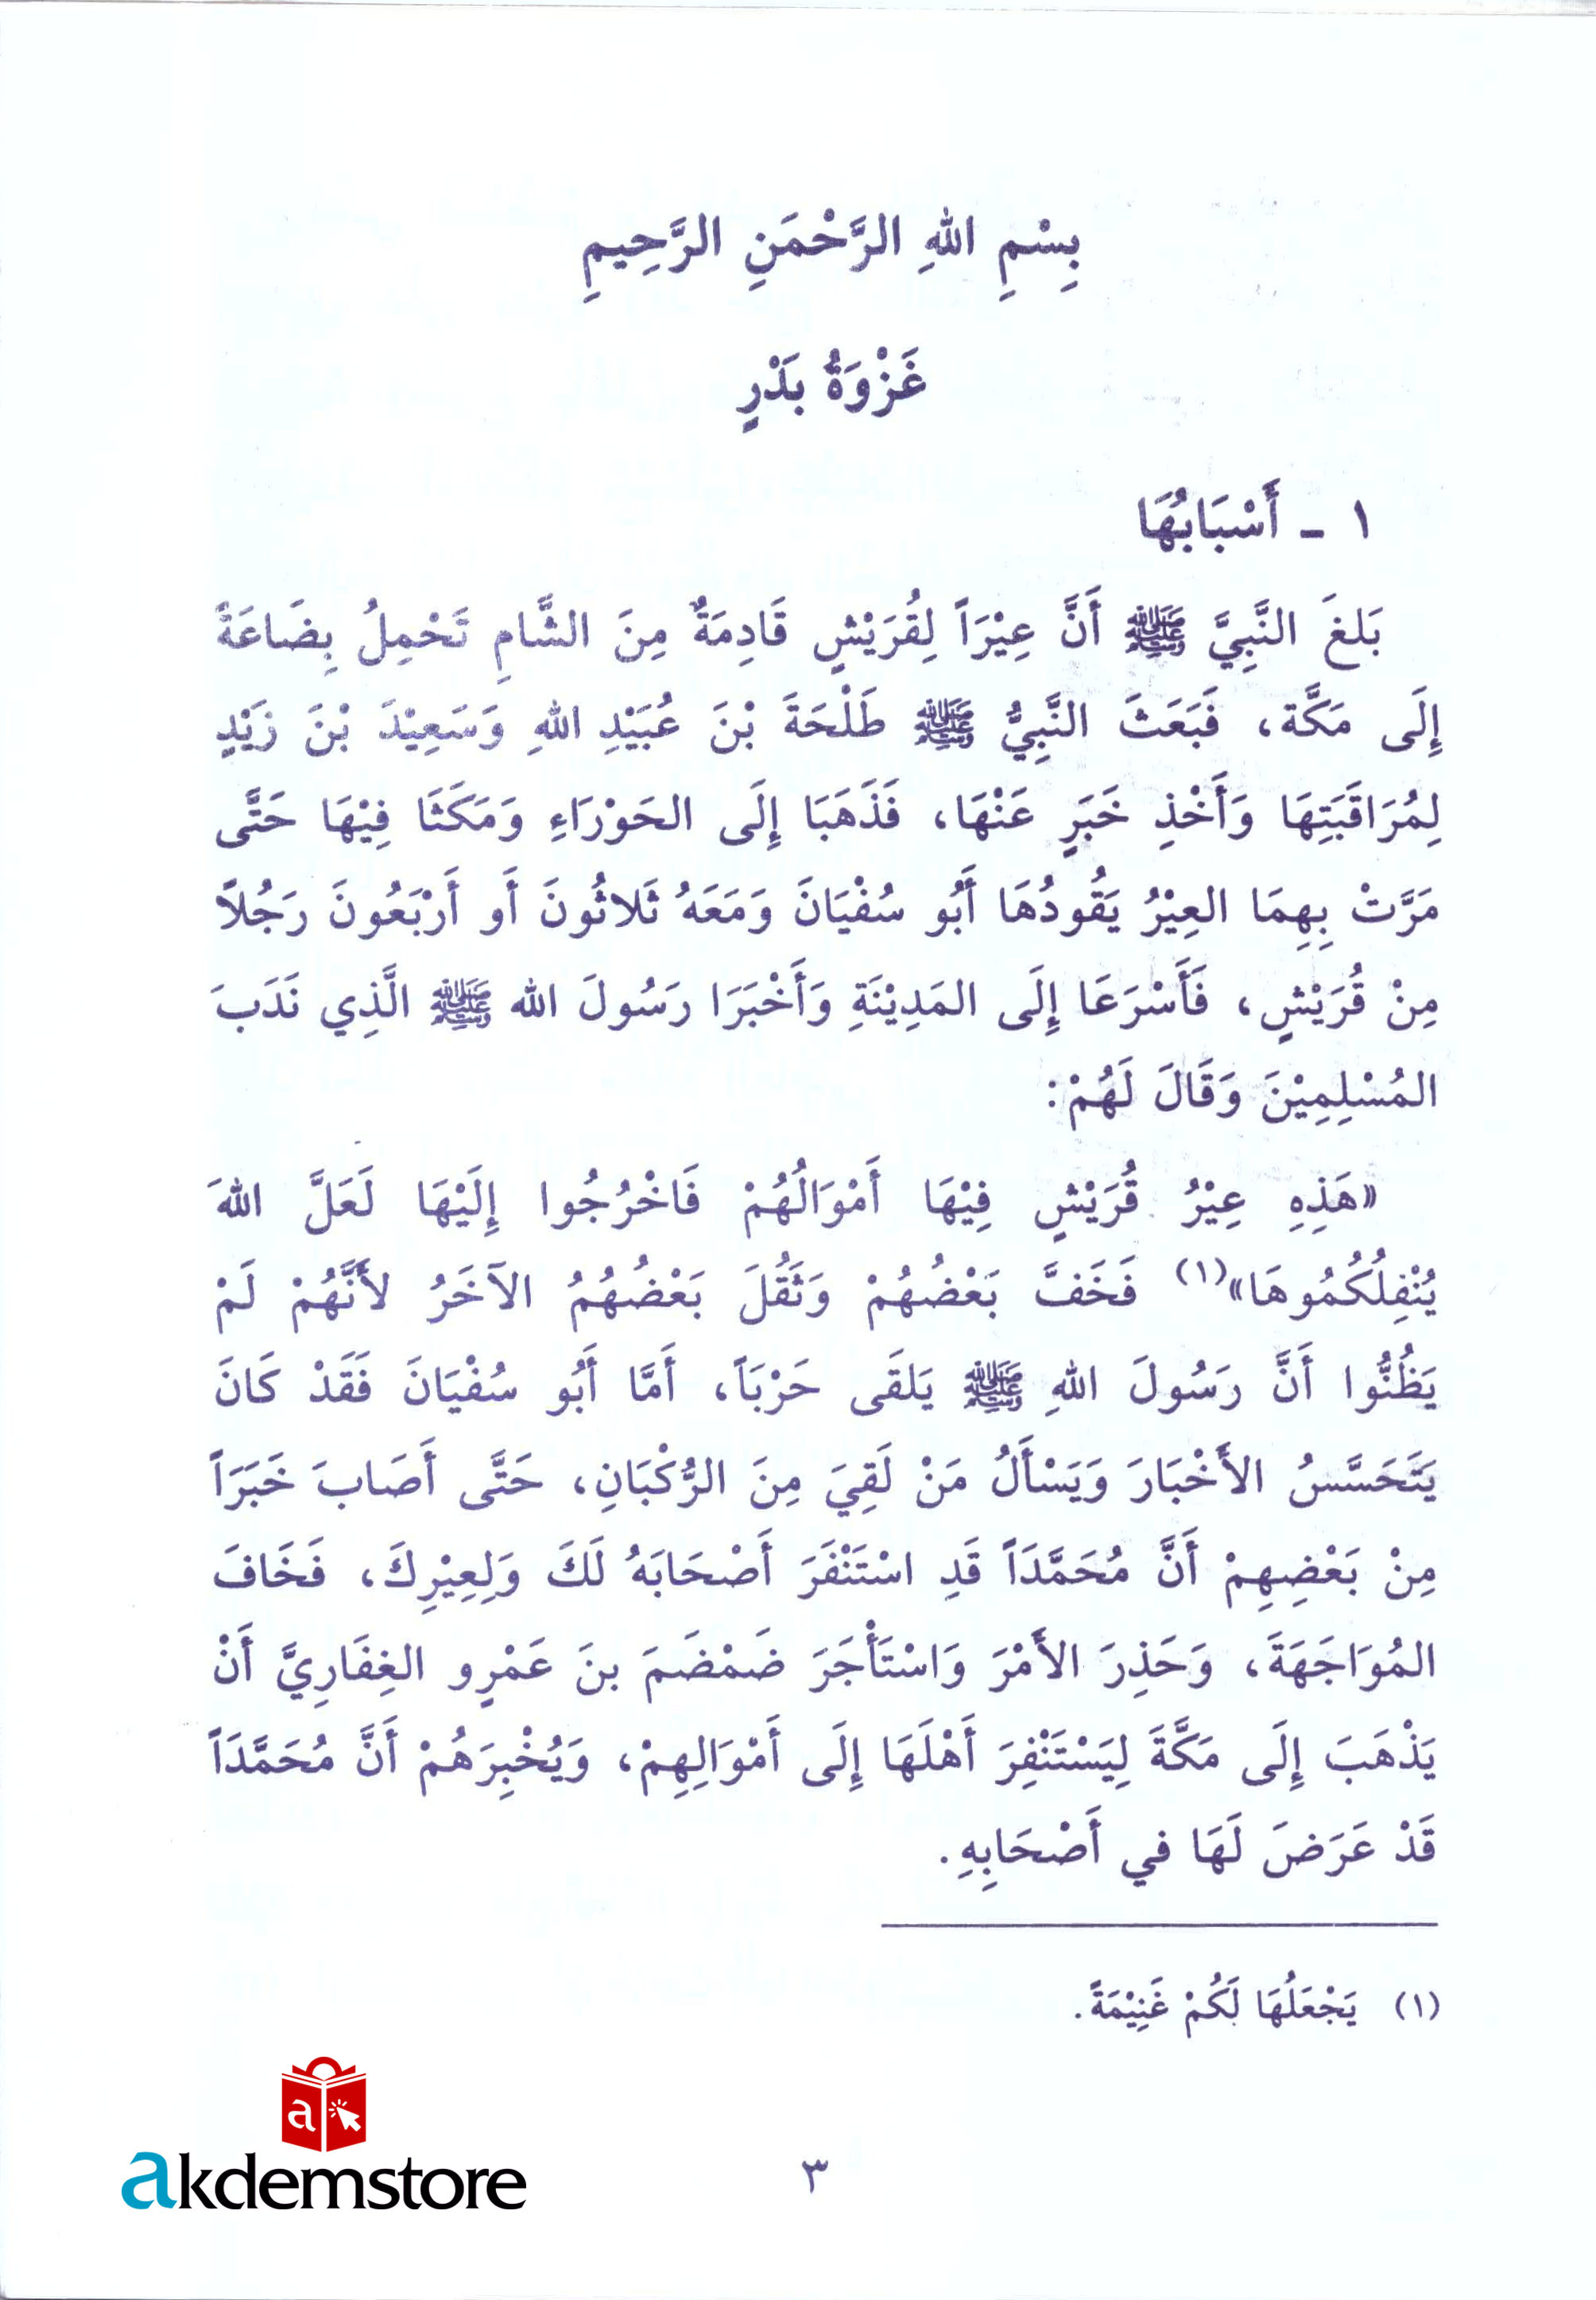 بِسْمِ اللهِ الرَّحْمَنِ الرَّحِيمِ
غَزْوَةُ بَدْرٍ
١ - أَسْبَابُهَا
بَلغَ النَّبِيَّ ﷺ أَنَّ عِيْرَاً لِقُرَيْشٍ قَادِمَةٌ مِنَ الشَّامِ تَحْمِلُ بِضَاعَةً
إِلَى مَكَّة، فَبَعَثَ النَّبِيُّ ﷺ طَلْحَةَ بْنَ عُبَيْدِ اللهِ وَسَعِيْدَ بْنَ زَيْدٍ
لِمُرَاقَبَتِهَا وَأَخْذِ خَبَرٍ عَنْهَا، فَذَهَبَا إِلَى الحَوْرَاءِ وَمَكَثَا فِيْهَا حَتَّى
مَرَّتْ بِهِمَا العِيْرُ يَقُودُهَا أَبُو سُفْيَانَ وَمَعَهُ ثَلاثُونَ أَو أَرْبَعُونَ رَجُلاً
مِنْ قُرَيْشٍ، فَأَسْرَعَا إِلَى المَدِيْنَةِ وَأَخْبَرَا رَسُولَ الله ﷺ الَّذِي نَدَبَ
المُسْلِمِيْنَ وَقَالَ لَهُمْ:
«هَذِهِ عِيْرُ قُرَيْشٍ فِيْهَا أَمْوَالُهُمْ فَاخْرُجُوا إِلَيْهَا لَعَلَّ اللهَ
يُنْفِلُكُمُوهَا»(١) فَخَفَّ بَعْضُهُمْ وَثَقُلَ بَعْضُهُمُ الآخَرُ لأَنَّهُمْ لَمْ
يَظُنُّوا أَنَّ رَسُولَ اللهِ ﷺ يَلقَى حَرْبَاً، أَمَّا أَبُو سُفْيَانَ فَقَدْ كَانَ
يَتَحَسَّسُ الأَخْبَارَ وَيَسْأَلُ مَنْ لَقِيَ مِنَ الرُّكْبَانِ، حَتَّى أَصَابَ خَبَرَاً
مِنْ بَعْضِهِمْ أَنَّ مُحَمَّدَاً قَدِ اسْتَنْفَرَ أَصْحَابَهُ لَكَ وَلِعِيْرِكَ، فَخَافَ
المُوَاجَهَةَ، وَحَذِرَ الأَمْرَ وَاسْتَأْجَرَ ضَمْضَمَ بنَ عَمْرٍو الغِفَارِيَّ أَنْ
يَذْهَبَ إِلَى مَكَّةَ لِيَسْتَنْفِرَ أَهْلَهَا إِلَى أَمْوَالِهِمْ، وَيُخْبِرَهُمْ أَنَّ مُحَمَّدَاً
قَدْ عَرَضَ لَهَا في أَصْحَابِهِ.
(١) يَجْعَلُهَا لَكُمْ غَنِيْمَةً.
a
akdemstore
٣